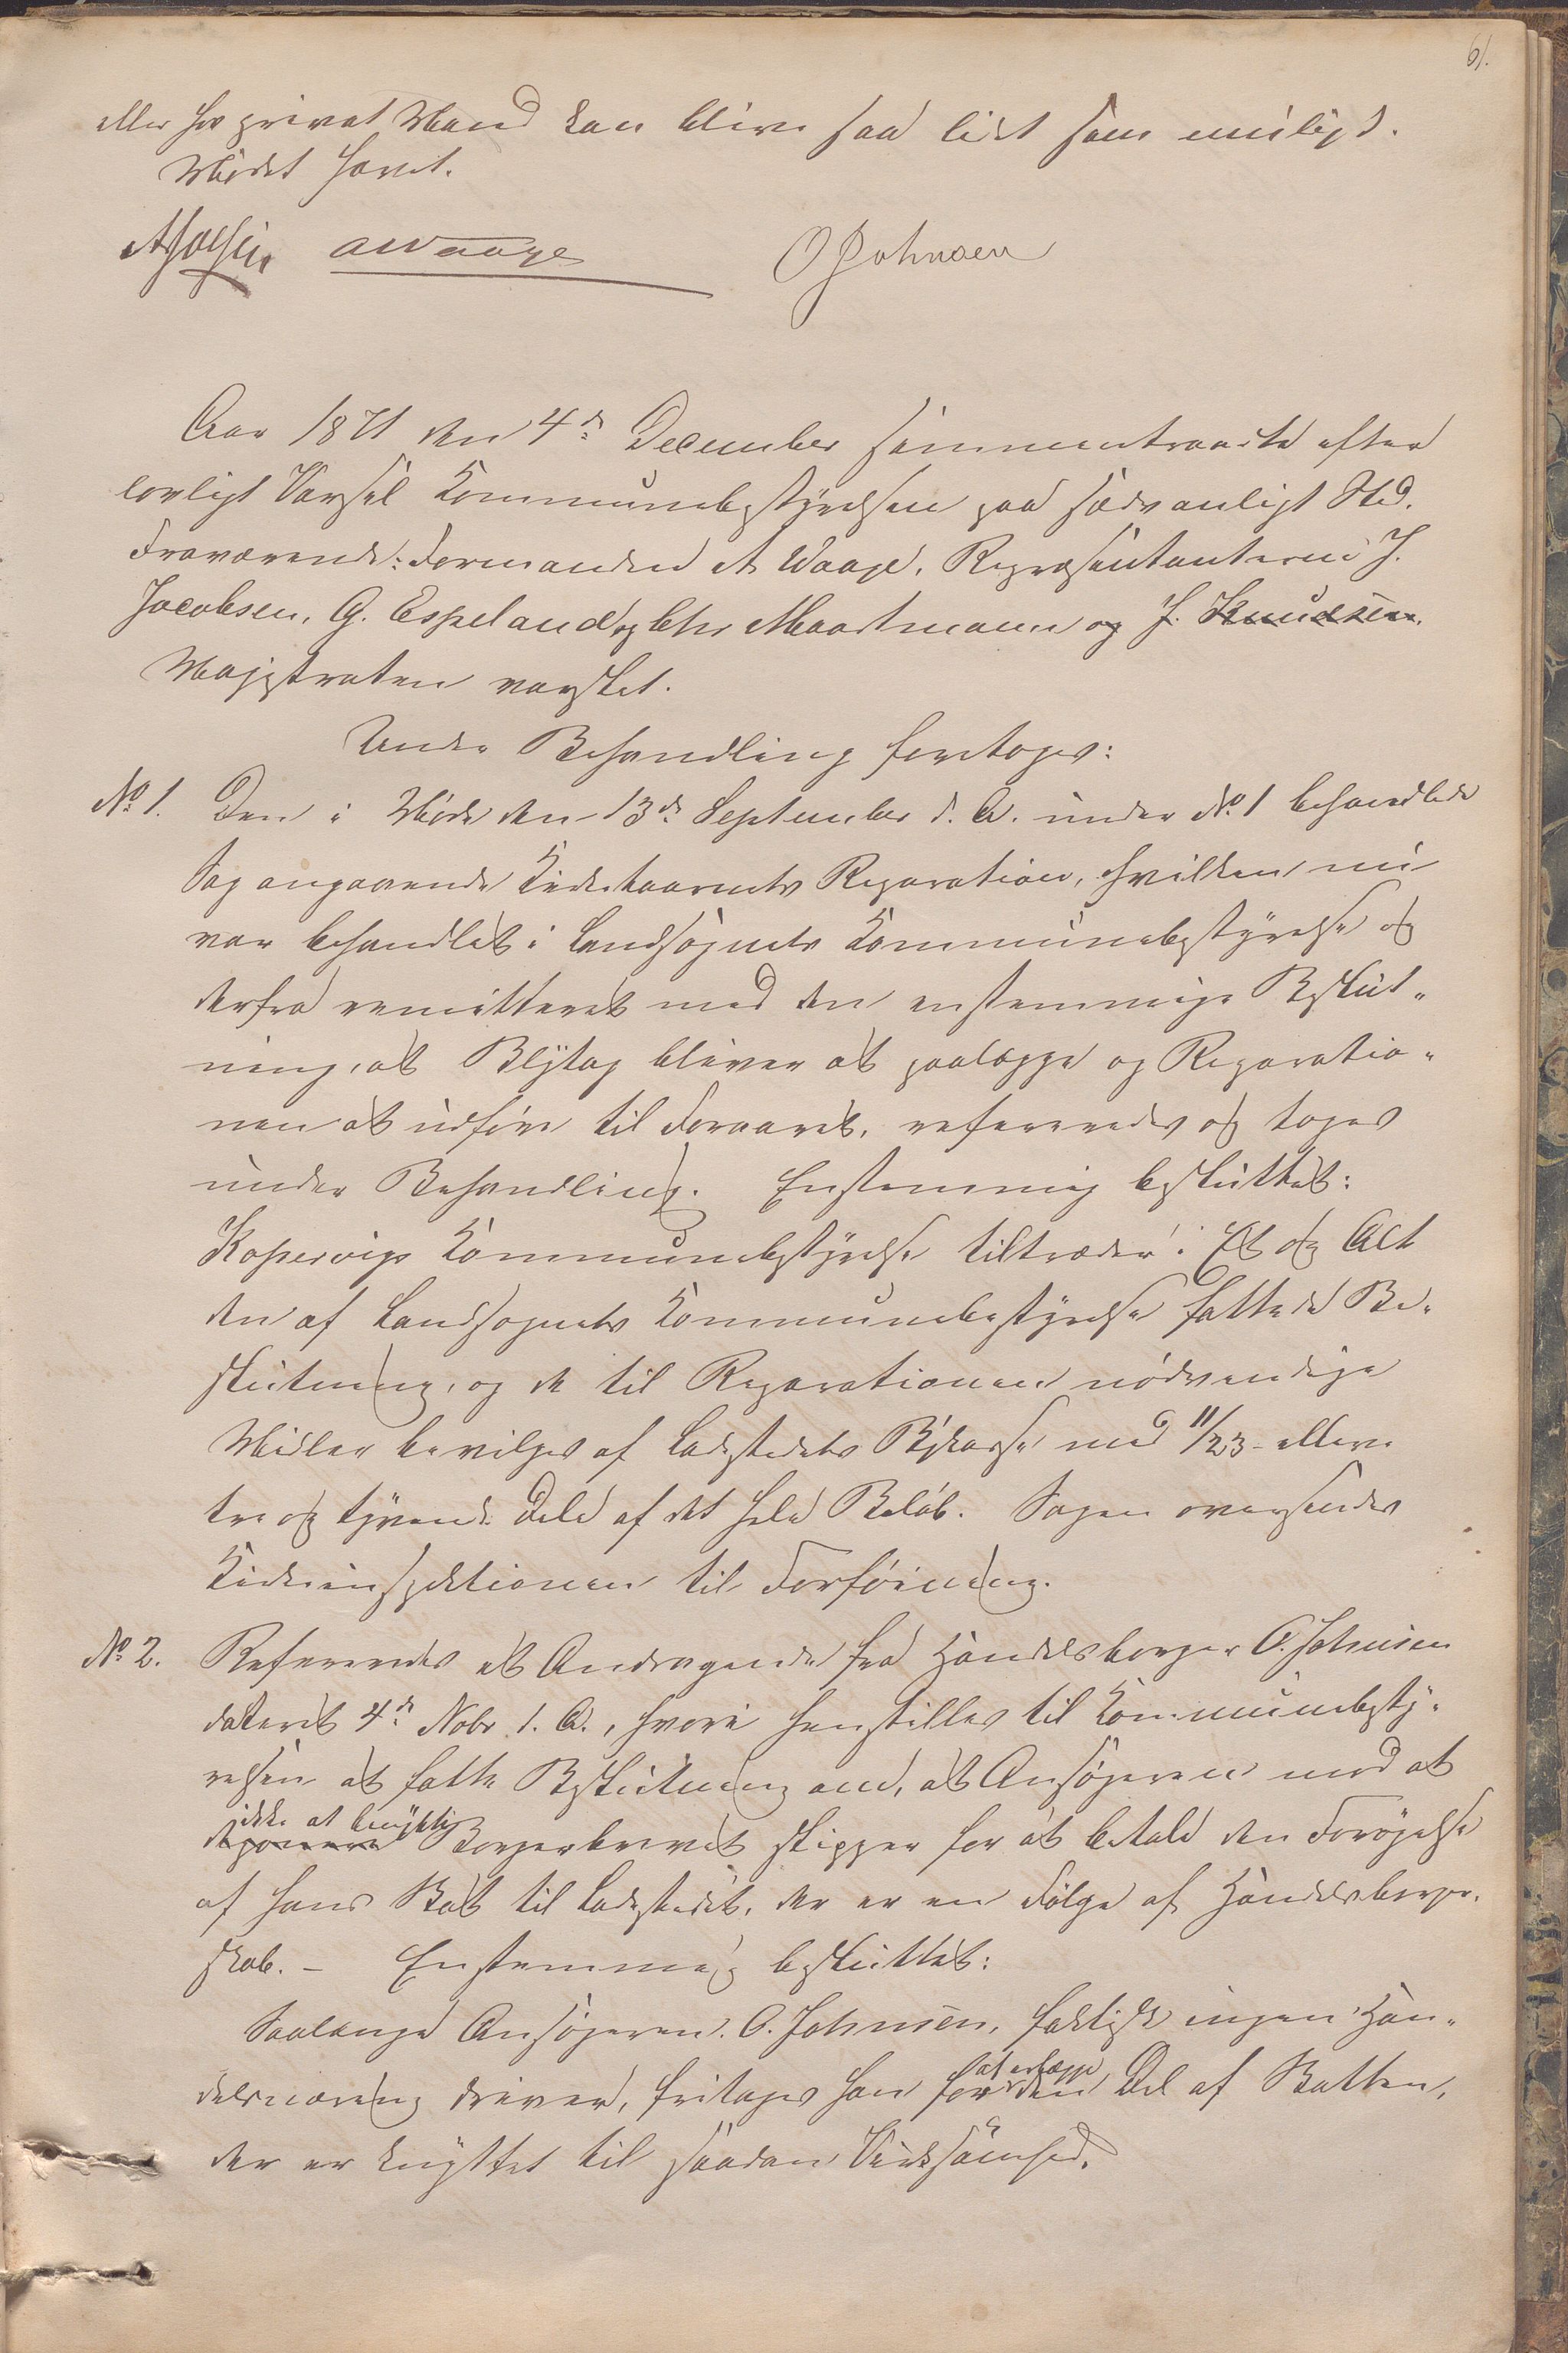 61.
eller for privat Mand kan blive saa lidt som muligt.
Mødet hævet.
AWaage OJohnsen
Aar 1871 den 4de December sammentraadte efter
lovligt Varsel Kommunebestyrelsen paa sædvanligt Sted.
Fraværende: Formanden A Waage, Repræsentanterne J.
Jacobsen, G. Espeland og Chr Maartmann og J. Knudsen.
Magistraten varslet.
Under Behandling foretoges:
No 1. Den i Møde den 13de September d. A. under No 1 behandlede
Sag angaaende Kirketaarnets Reparation, hvilken nu
var behandlet i Landsognets Kommunebestyrelse og
derfra remitteret med den enstemmige Beslut-
ning, at Blytag bliver at paalægge og Reparatio-
nen at udføre til Foraaret, refereredes og toges
under Behandling. Enstemmig besluttet:
Kopervigs Kommunebestyrelse tiltræder i Et og Alt
den af Landsognets Kommunebestyrelse fattede Be-
slutning, og de til Reparationen nødvendige
Midler bevilges af Ladestedets Bykasse med 11/23 - elleve
tre og tyvende Dele af det hele Beløb. Sagen oversendes
Kirkeinspektionen til Forføining.
No 2. Refereredes et Andragende fra Handelsborger O. Johnsen
dateret 4de Nobr d. A., hvori henstilles til Kommunebesty-
relsen at fatte Beslutning om, at Ansøgeren mod at
deponere ikke at benytte Borgerbrevet slipper for at betale den Forøgelse
af hans Skat til Ladestedet, der er en Følge af Handelsborger-
skab. - Enstemmig besluttet:
Saalænge Ansøgeren, O. Johnsen, faktisk ingen Han-
delsnæring driver, fritages han for at erlægge den Del af Skatten,
der er knyttet til saadan Virksomhed.